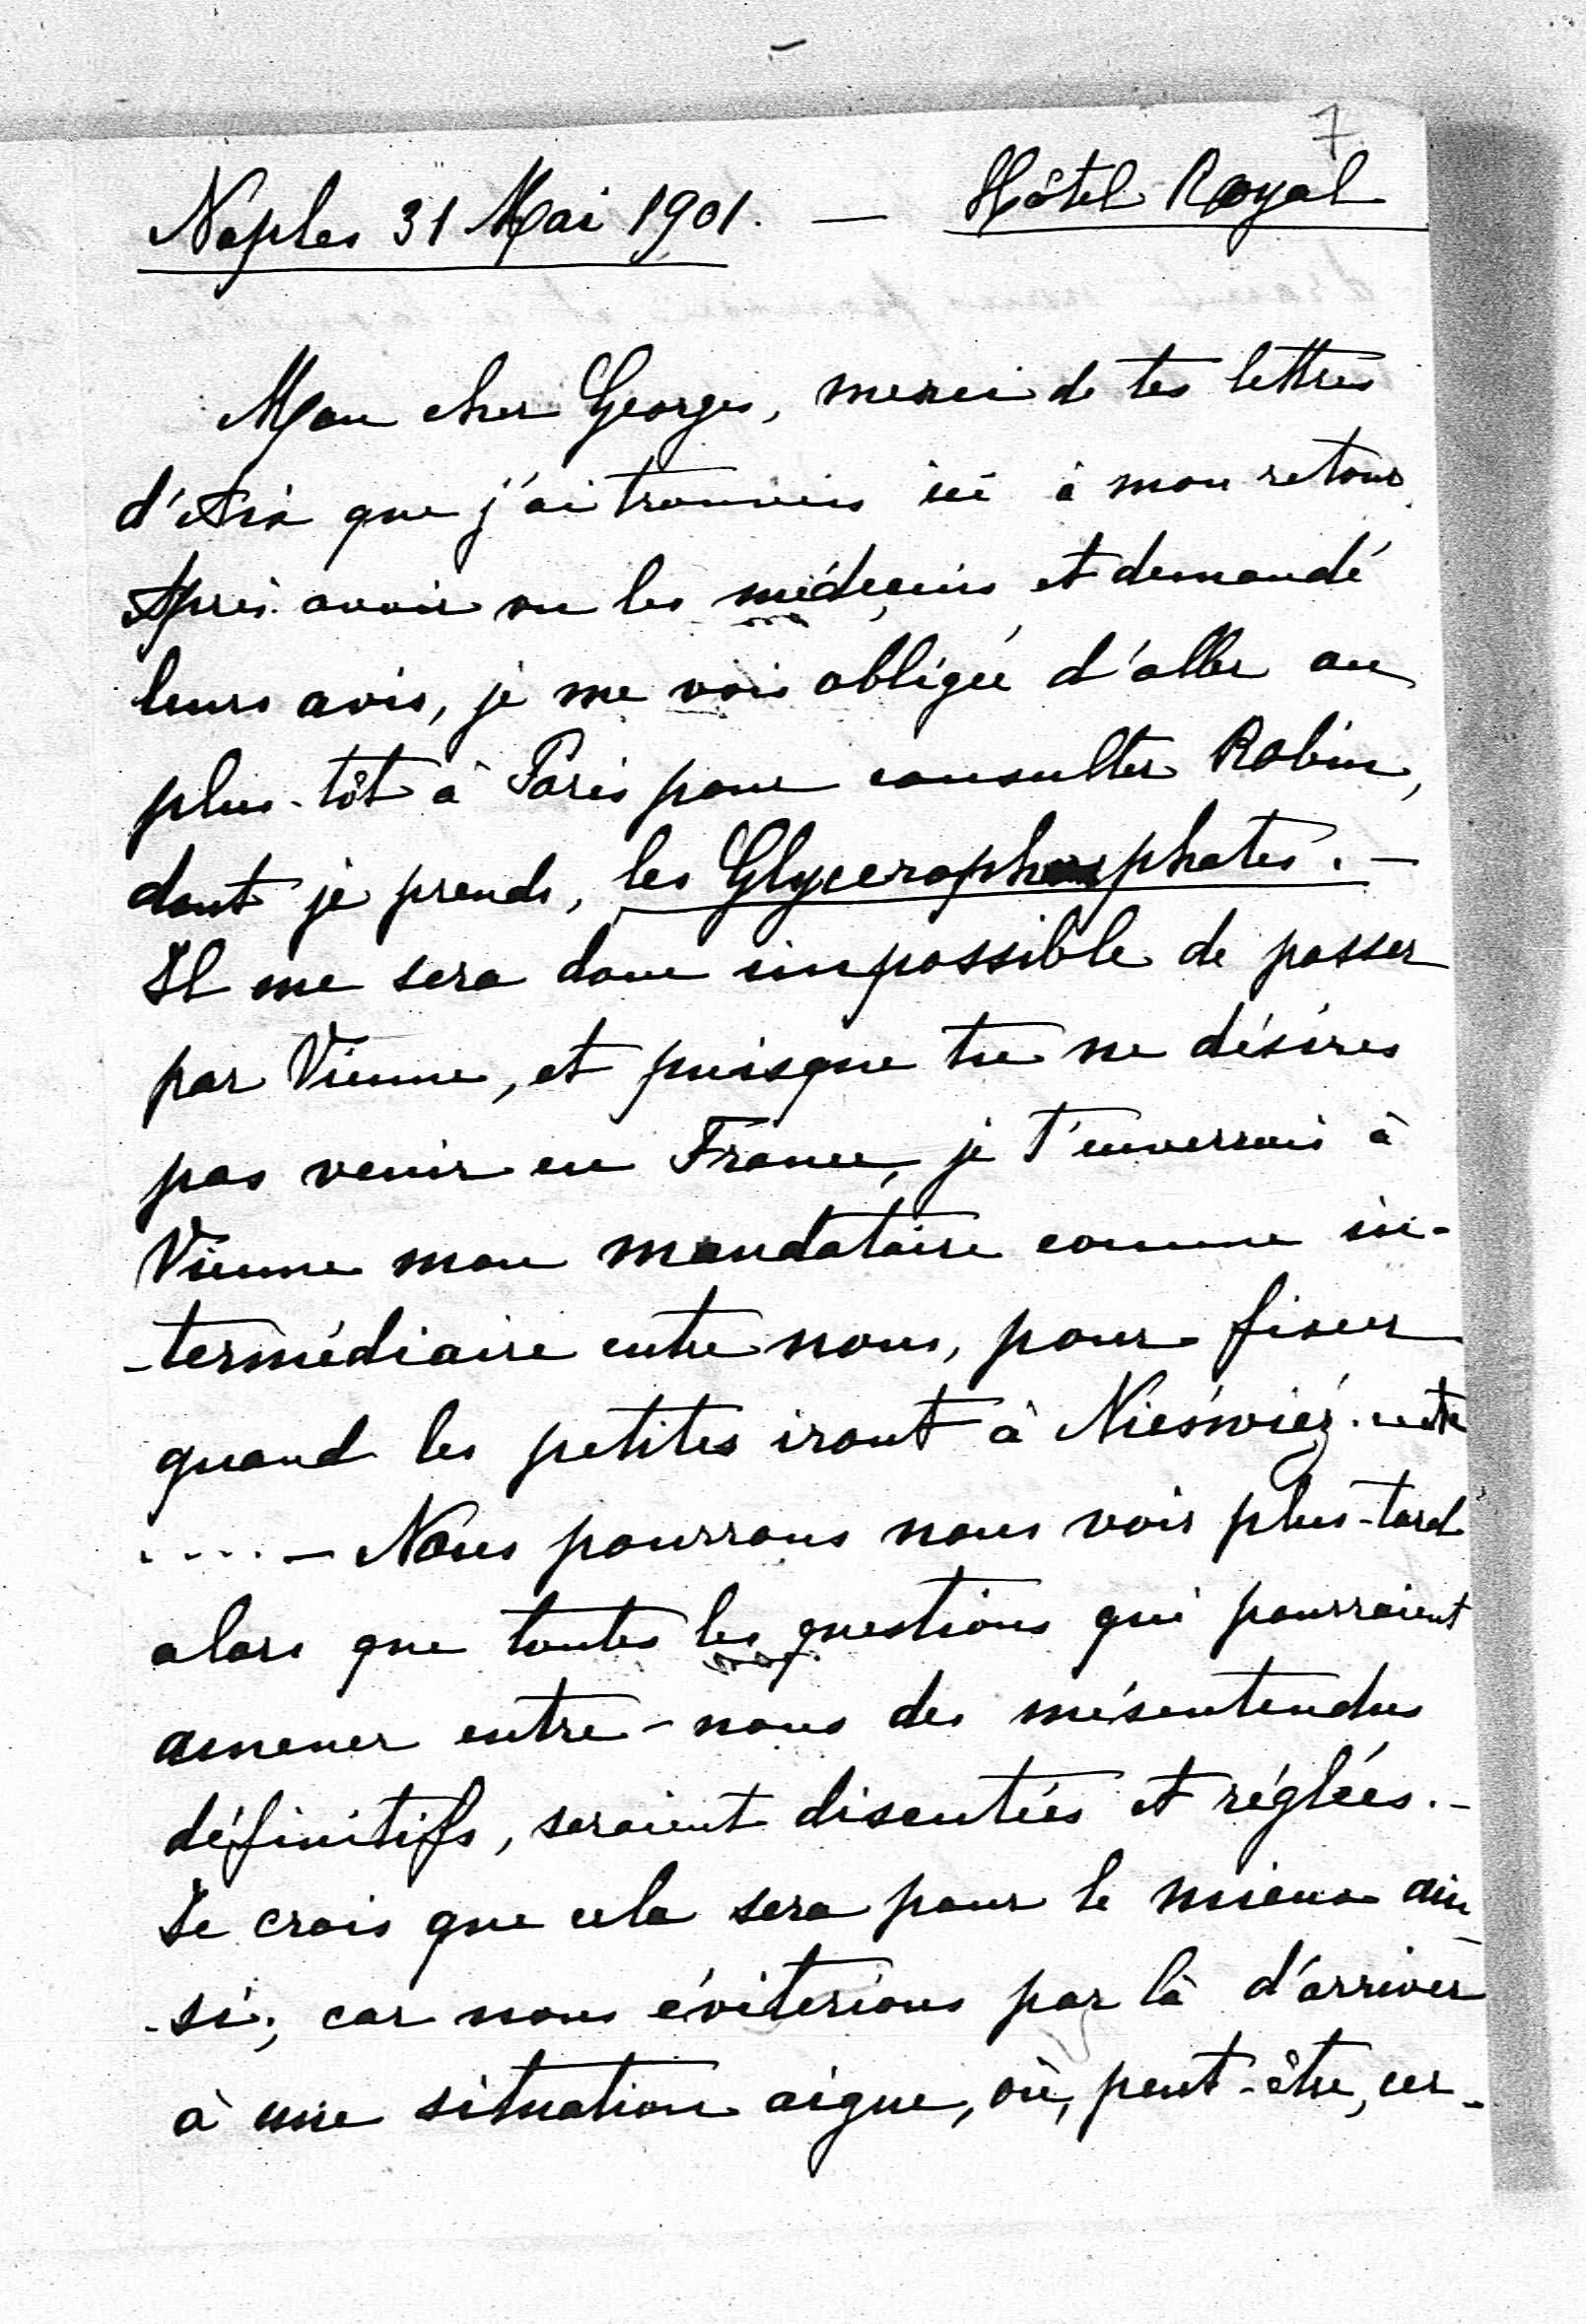 7
Naples 31 Mai 1901. — Hôtel Royal
Mon cher Georges, merci de tes lettres
d'Aix que j'ai trouvées ici à mon retour.
Après avoir vu les médeçins et demandé
leurs avis, je me vois obligée d'aller au
plus-tôt à Paris pour consulter Robin,
dont je prends, les Glycerophosphates. —
Il me sera donc impossible de passer
par Vienne, et puisque tu ne désires
pas venir en France, je t'enverrais à
Vienne mon mandataire comme in-
-termédiaire entre nous, pour fixer
quand les petites iront à Nieświéz. ect
.... — Nous pourrons nous voir plus-tard
alors que toutes les questions qui pourraient
amener entre-nous des mésentendus
définitifs, seraient discutées et réglées. -
Je crois que cela sera pour le mieux ain-
-si; car nous éviterions par là d'arriver
à une situation aigue, où, peut-être, cer-